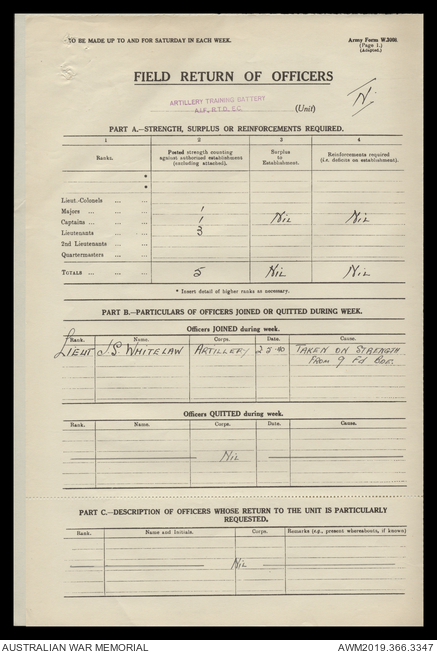 TO BE MADE UP TO AND FOR SATURDAY IN EACH WEEK.
Army Form W.3008.
(Page 1.)
(Adapted.)
FIELD RETURN OF OFFICERS
ARTILLERY TRAINING BATTERY
A.I.F., R.T.D., E.C.
(Unit)
PART A.—STRENGTH, SURPLUS OR REINFORCEMENTS REQUIRED.
1 2 3 4
Ranks. Posted strength counting against authorised establishment (excluding attached). Surplus to Establishment. Reinforcements required (i.e. deficits on establishment).
*
*
Lieut.-Colonels ... ...
Majors ... ... 1
Captains ... ... 1 Nil Nil
Lieutenants ... 3
2nd Lieutenants ... ...
Quartermasters ... ...
TOTALS ... ... 5 Nil Nil
* Insert detail of higher ranks as necessary.
PART B.—PARTICULARS OF OFFICERS JOINED OR QUITTED DURING WEEK.
Officers JOINED during week.
Rank. Name. Corps. Date. Cause.
LIEUT J.S. WHITELAW ARTILLERY TAKEN ON STRENGTH
FROM 9 Fd BDE.
Officers QUITTED during week.
Rank. Name. Corps. Date. Cause.
Nil
PART C.—DESCRIPTION OF OFFICERS WHOSE RETURN TO THE UNIT IS PARTICULARLY
REQUESTED.
Rank. Name and Initials. Corps. Remarks (e.g., present whereabouts, if known)
Nil
AUSTRALIAN WAR MEMORIAL AWM2019.366.3347